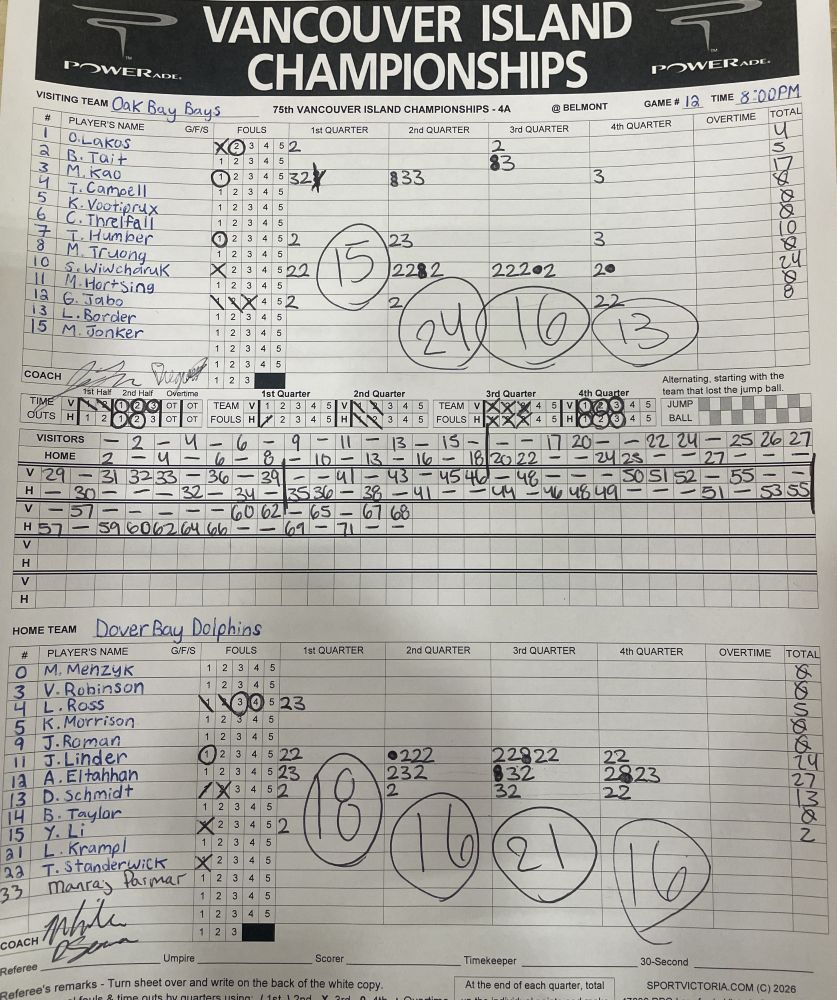 VANCOUVER ISLAND
CHAMPIONSHIPS
POWERADE.
POWERADE.
VISITING TEAM Oak Bay Bays 75th VANCOUVER ISLAND CHAMPIONSHIPS - 4A @ BELMONT GAME # 12 TIME 8:00PM
# PLAYER'S NAME G/F/S FOULS 1st QUARTER 2nd QUARTER 3rd QUARTER 4th QUARTER OVERTIME TOTAL
1 O. Lakos 2 3 4 5 2 2 4
2 B. Tait 1 2 3 4 5 3 5
3 M. Kao 1 2 3 4 5 32 33 3 17
4 T. Campell 1 2 3 4 5 0
5 K. Vootiprux 1 2 3 4 5 0
6 C. Threlfall 1 2 3 4 5 0
7 T. Humber 1 2 3 4 5 2 23 3 10
8 M. Truong 1 2 3 4 5 0
10 S. Wiwcharuk 2 3 4 5 22 22 2 222 2 2 24
11 M. Hortsing 1 2 3 4 5 0
12 G. Jabo 4 5 2 2 22 8
13 L. Border 1 2 3 4 5
15 M. Jonker 1 2 3 4 5
15 24 16 13
1 2 3 4 5
1 2 3 4 5
COACH 1 2 3
1st Half 2nd Half Overtime 1st Quarter 2nd Quarter 3rd Quarter 4th Quarter
Alternating, starting with the
team that lost the jump ball.
TIME V 1 2 1 2 3 OT OT TEAM V 1 2 3 4 5 V 1 2 3 4 5 TEAM V 4 5 V 1 2 3 4 5 JUMP
OUTS H 1 2 1 2 3 OT OT FOULS H 1 2 3 4 5 H 1 2 3 4 5 FOULS H 4 5 H 1 2 3 4 5 BALL
VISITORS – 2 – 4 – 6 – 9 – 11 – 13 – 15 – – – 17 20 – – 22 24 – 25 26 27
HOME 2 – 4 – 6 – 8 – 10 – 13 – 16 – 18 20 22 – – 24 25 – – 27 – – –
V 29 – 31 32 33 – 36 – 39 – – 41 – 43 – 45 46 – 48 – – – 50 51 52 – 55 – –
H – 30 – – – 32 – 34 – 35 36 – 38 – 41 – – 44 – 46 48 49 – – – 51 – 53 55
V – 57 – – – – – 60 62 – 65 – 67 68
H 57 – 59 60 62 64 66 – – 69 – 71 – –
V
H
V
H
HOME TEAM Dover Bay Dolphins
# PLAYER'S NAME G/F/S FOULS 1st QUARTER 2nd QUARTER 3rd QUARTER 4th QUARTER OVERTIME TOTAL
0 M. Menzyk 1 2 3 4 5 0
3 V. Robinson 1 2 3 4 5 0
4 L. Ross 3 4 5 23 5
5 K. Morrison 1 2 3 4 5 0
9 J. Roman 1 2 3 4 5 0
11 J. Linder 1 2 3 4 5 22 222 22 22 22 24
12 A. Eltahhan 1 2 3 4 5 23 232 32 2 23 27
13 D. Schmidt 3 4 5 2 2 32 22 13
14 B. Taylor 1 2 3 4 5 0
15 Y. Li 2 3 4 5 2 2
21 L. Krampl 1 2 3 4 5
22 T. Standerwick 2 3 4 5
33 Manraj Parmar 1 2 3 4 5
18 16 21 16
1 2 3 4 5
1 2 3 4 5
COACH 1 2 3
Referee Umpire Scorer Timekeeper 30-Second
Referee's remarks - Turn sheet over and write on the back of the white copy.
At the end of each quarter, total
SPORTVICTORIA.COM (C) 2026